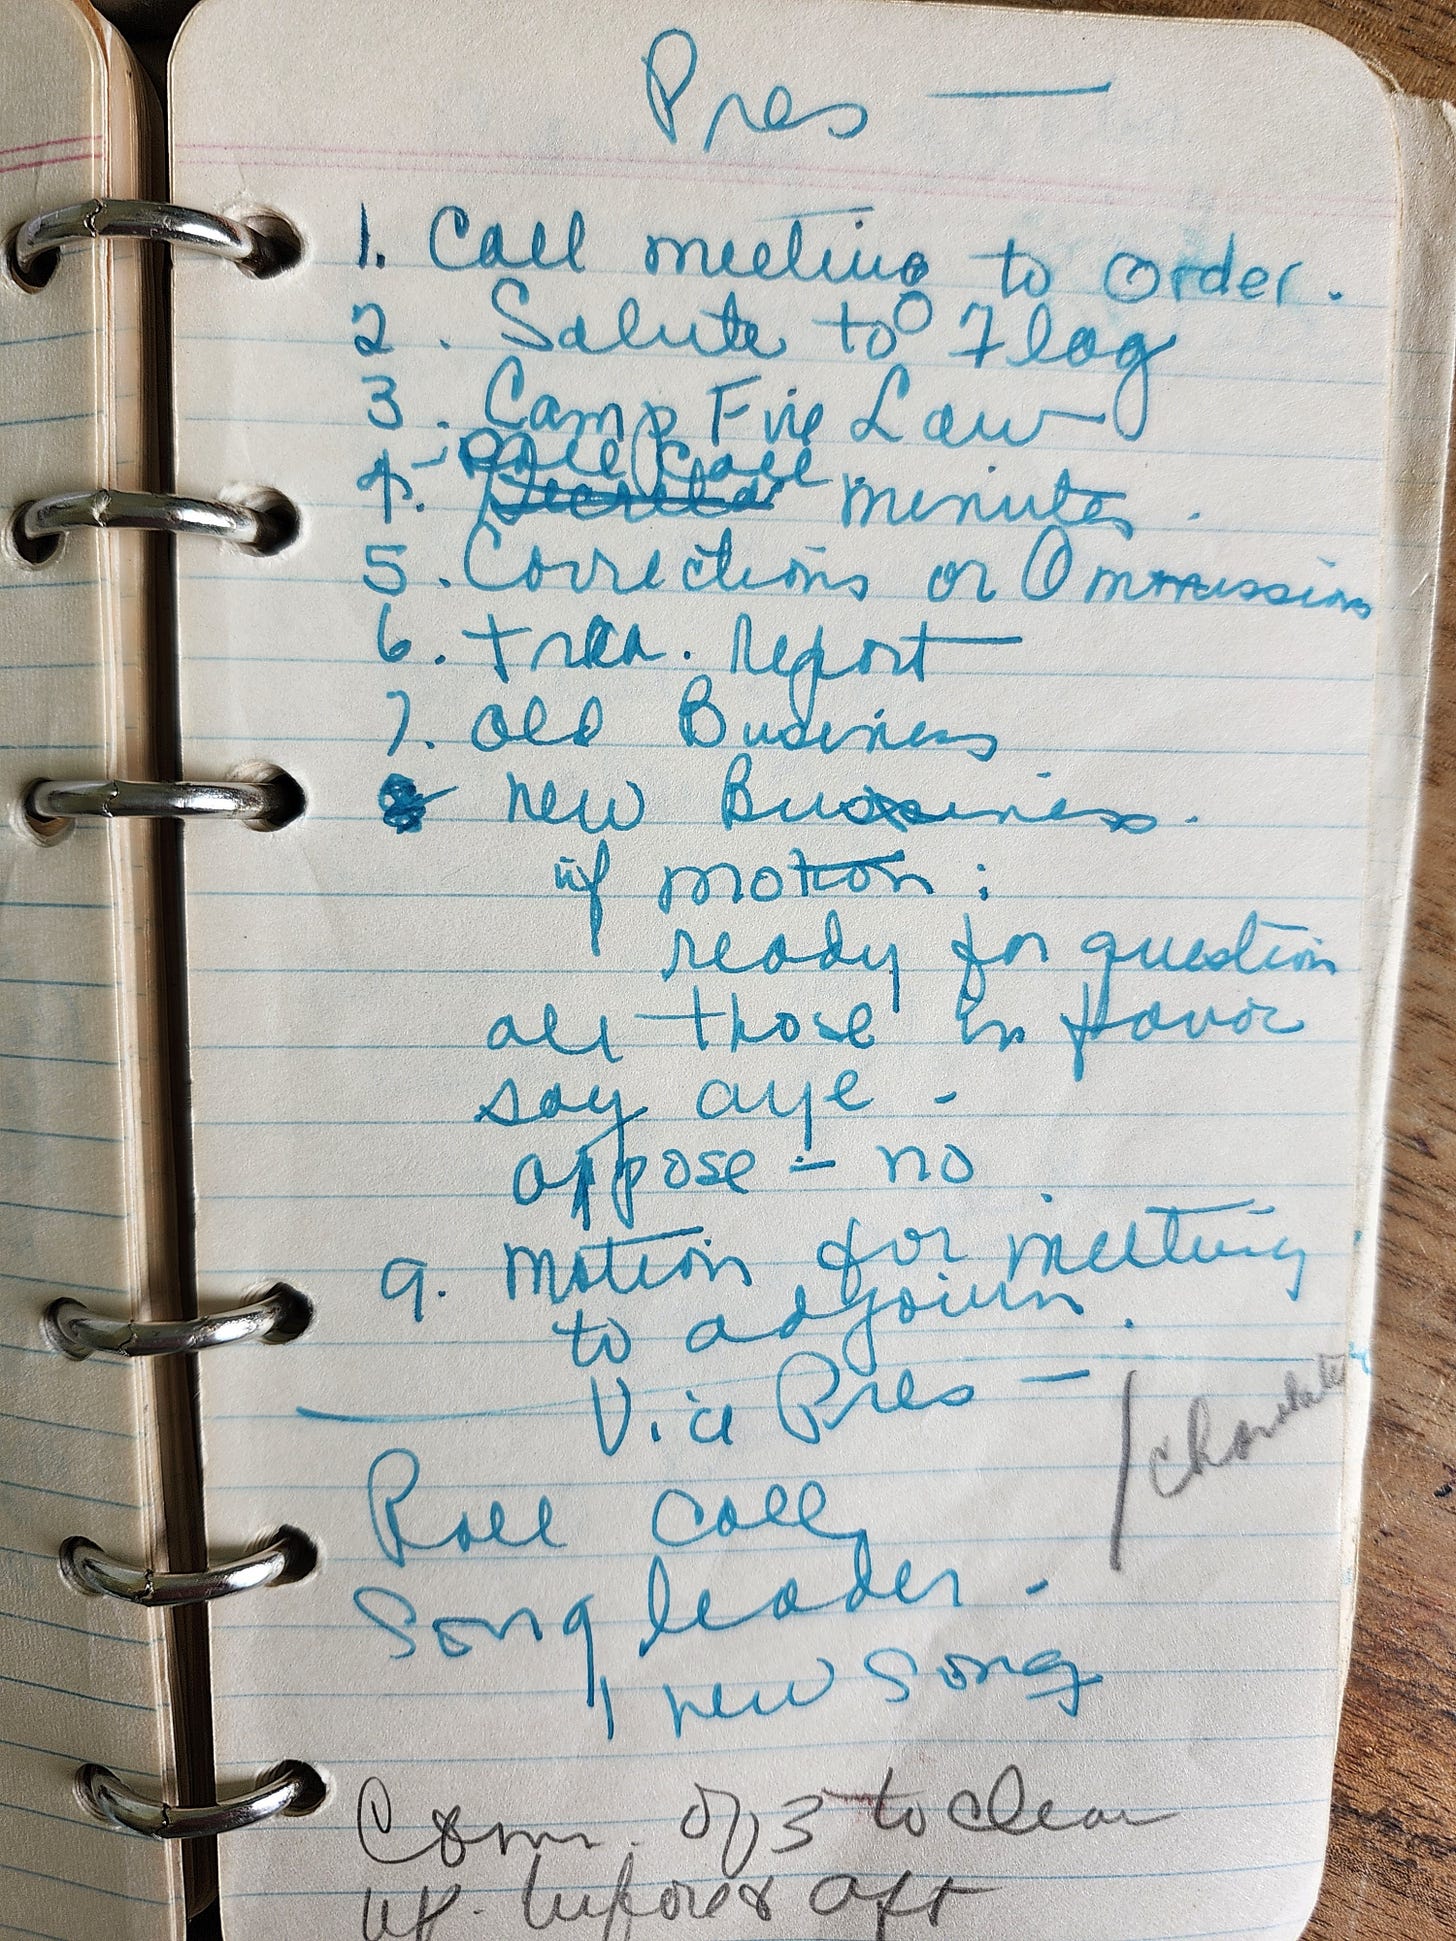 Pres —
1. Call meeting to order.
2. Salute to Flag
3. Camp Fire Law
Roll Call
4. minutes.
5. Corrections or Ommissions
6. trea. report
7. old Business
8 new Business.
if motion :
ready for question
all those in favor
say aye -
oppose - no
9. Motion for meeting
to adjourn.
Vice Pres —
Roll call
Song leader -
1 new song
Com. of 3 to clean
up. before & aft